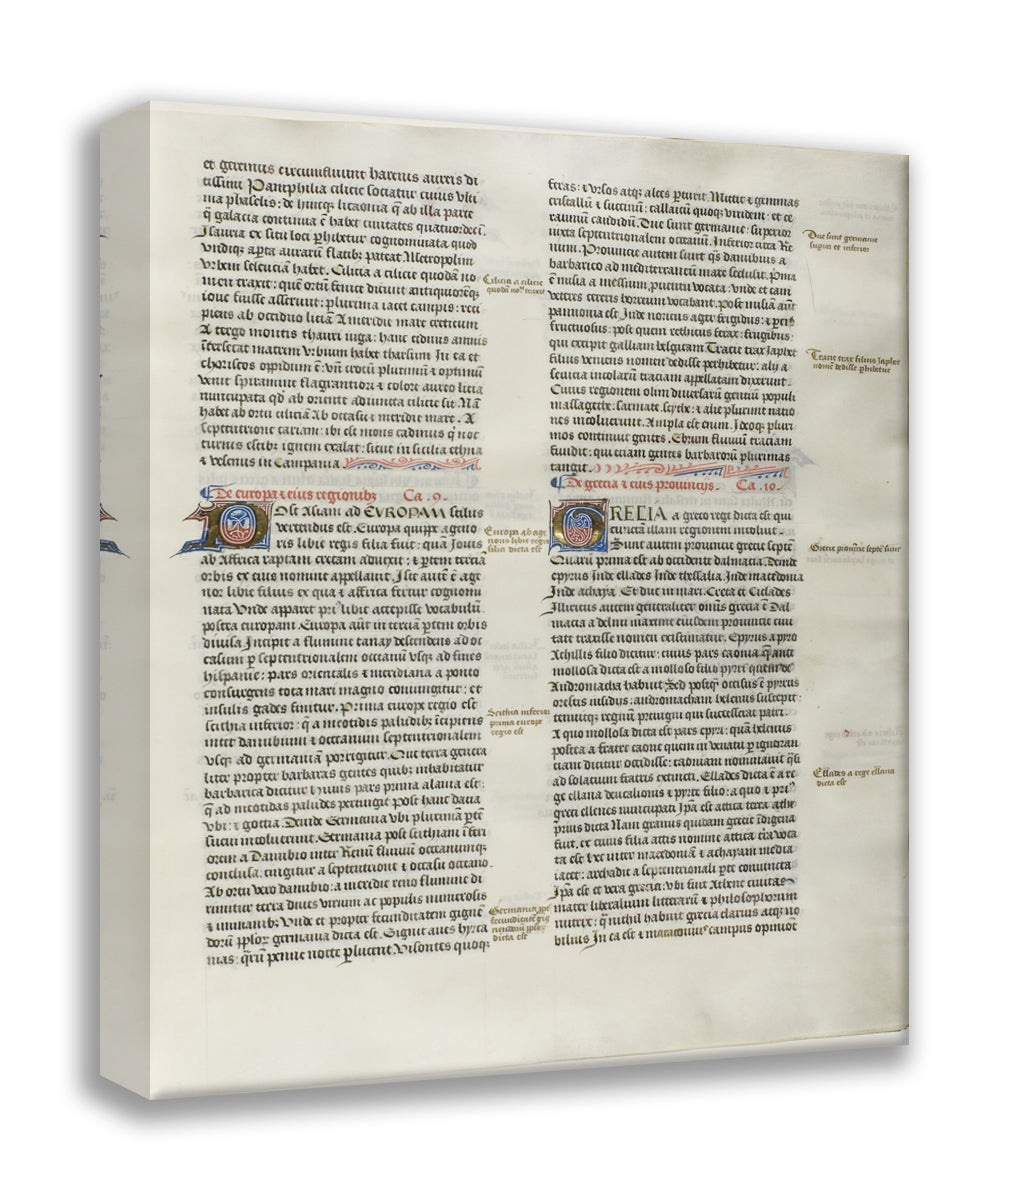 et gerimus circumfluunt harenis aureis di
tissimi Pamphilia cilicie sociatur cuius ulti
ma phaselis: de hincq licaonia q̄ ab illa parte
q̄ galacia continua ē habet ciuitates quatuordeci.
Isauria ex situ loci ꝑhibetur cognominata quod
undiq aperta aurarū flatibus pateat. Metropolim
urbem seleuciam habet. Cilicia a cilice quodā no
men traxit: quē ortū fenice dicunt antiquioresq
ioue fuisse asserunt: plurima iacet campis: reci
piens ab occiduo liciā A meridie mare creticum
A tergo montis thauri iuga: hanc cidnus amnis
īterfecat matrem urbium habet tharsum In ea et
choriscos oppidum ē: un crocū plurimū et optimū
venit spiramine flagrantiori et colore aureo licia
nuncupata qd ab oriente adiuncta cilicie sit. Nā
habet ab ortu ciliciā Ab occasu et meridie mare. A
septentrione cariam: ibi est mons cadinus q̄ noc
turnis estibz ignem exalat: sicut in sicilia ethna
et vesenus in Campania
De europa et eius regionibz Ca. 9.
Ost Asiam ad EVROPAM stilus
vertendus est. Europa quippe ageno
ris libie regis filia fuit: quā Jouis
ab Affrica raptam cretam aduexit: et ꝑtem tercia
orbis ex eius nomine appellauit. Iste autē ē age
nor libie filius ex qua et affrica fertur cognomi
nata Vnde apparet prius libie accepisse vocabulū
postea europam. Europa aūt in terciā ꝑtem orbis
diuisa Incipit a flumine tanay descendens ad oc
casum ꝑ septentrionalem occeanū usq ad fines
hispanie: pars orientalis et meridiana a ponto
consurgens tota mari magno coniungitur: et
insulis gades finitur. Prima europe regio est
scithia inferior: q̄ a meotidis paludibz īcipiens
inter danubium et occeanum septentrionalem
usq ad germaniā porrigitur. Que terra genera
liter propter barbaras gentes quibz inhabitatur
barbarica dicitur huius pars prima alania est:
q̄ ad meotidas paludes pertingit Post hanc dacia
ubi: et gottia. Deinde Germania ubi plurimā ꝑtē
sueui incoluerunt. Germania post scithiam īferi
orem a Danubio inter Renū fluuiū occeanumq
conclusa: cingitur a septentrione et occasu occeano.
Ab ortu vero danubio: a meridie reno flumine di
rimitur terra diues virum ac populis numerosis
et inmanibz Vnde et propter fecunditatem gignē
dorū ꝑploꝝ germania dicta est. Gignit aues hyrca
nias: qūr penne nocte ꝑlucent. Visontes quoq
Cilicia a cilice
quodā noē traxit
Europa ab age
nore libie regis
filia dicta est
Scithia inferior
prima europe
regio est
Germania ꝓꝑt
fecunditatē gig
nendoꝝ ꝑploꝝ
dicta est
feras: et ursos atq alces parturit. Mittit et gemmas
cristallū et succinū: callaicū quoq viridem: et ce
raunium candidū. Due sunt germanie: superior
iuxta septentrionalem occeanū. Inferior circa Re
num. Prouincie autem sunt q̄s danubius a
barbarico ad mediterraneū mare secludit. Prima
ē misia a messium prouentu vocata: vnde et eam
veteres cereris horreum vocabant. Post misiā aūt
pannonia est Inde noricus ager frigidus: et ꝑcius
fructuosus: post quem rethicus ferax: frugibus:
qui excipit galliam belgicam Tracie tiras Japhet
filius veniens nomen dedisse perhibetur: alij a
seuicia incolarū traciam appellatam dixerunt.
Cuius regionem olim diuersarū gentiū populi
massagethe: sarmate. scythe: et alie plurime natio
nes incoluerunt. Ampla est enim. Ideoq pluri
mos continuit gentes. Ebrum fluuiū traciam
fundit: qui eciam gentes barbarorū plurimas
tangit.
De grecia et eius prouincijs. Ca. 10.
GRECIA a greco rege dicta est qui
cunctā illam regionem incoluit.
Sunt autem prouincie grecie septē
Quarū prima est ab occidente dalmacia. Deinde
epyrus Inde ellades Inde thessalia. Inde macedonia
Inde achaya. Et due in mari. Creta et Ciclades
Illiricus autem generaliter omīs grecia ē Dal
macia a delmi maxime eiusdem prouincie ciui
tate traxisse nomen existimatur. Epyrus a pyro
Achillis filio dicitur: cuius pars caonia q̄ ante
mollosa dicta est a molloso filio pyrri quem de
Andromacha habuit Sed postq̄ occisus ē pyrrus
orestis insidys: andromacham helenus suscepit:
tenuitq regnū preuigni qui successerat patri.
A quo mollosa dicta est pars epyri: quā helenus
postea a fratre caone quem in venatu ꝑ ignoran
ciam dicitur occidisse: caoniam nominauit q̄si
ad solacium fratris extincti. Ellades dicta ē a re
ge ellana deucalionis et pyrre filio: a quo et prius
greci ellenes nuncupati Ipā est attica terra athe
prius dicta Nam granus quidam grecie īdigena
fuit. ex cuius filia attis nomine attica terra voca
ta est hec inter macedoniam et achayam media
iacet: archadie a septentrionali ꝑte coniuncta
Ipā est et vera grecia: vbi fuit Athene ciuitas
mater liberalium litterarū et philosophorum
nutrix: q̄ nichil habuit grecia clarius atq no
bilius In ea est et maratonius campus opinioē
Due sunt germanie
superior et inferior
Tracie tirax filius Japhet
nomē dedisse ꝑhibetur
Grecie prouīcie septē sunt
Ellades a rege ellana
dicta est